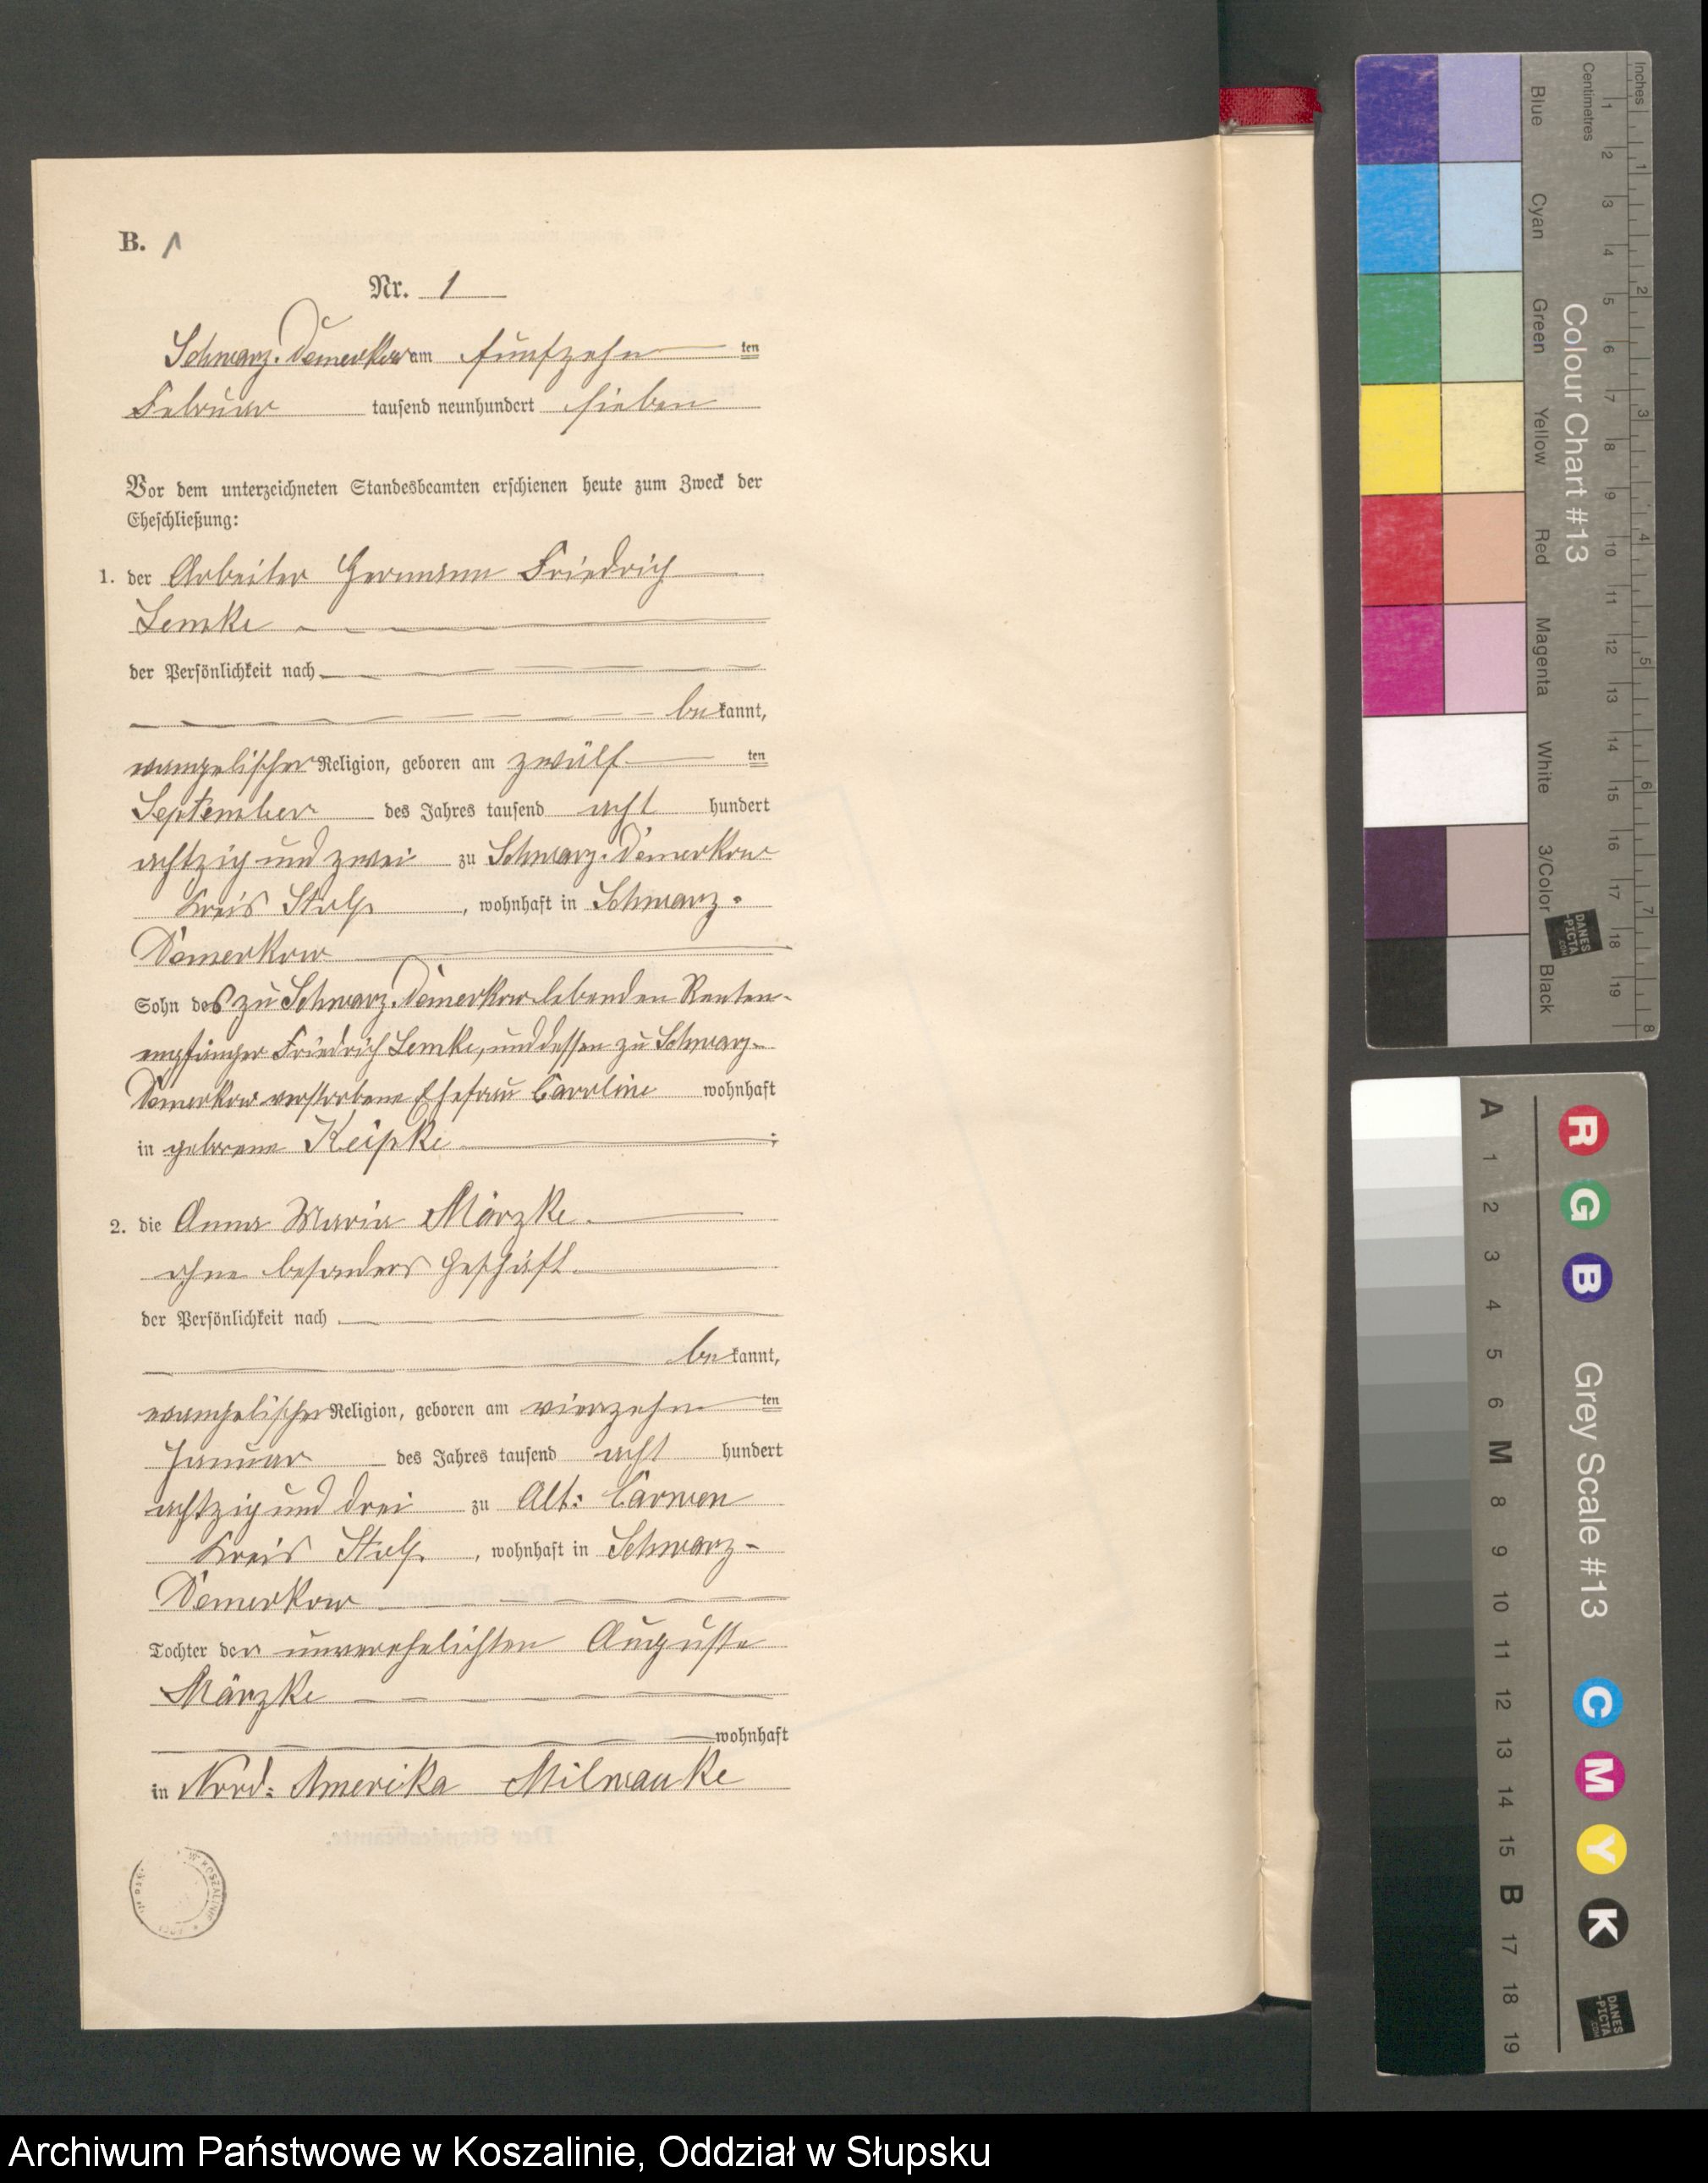 B. 1
Nr. 1
Schwarz-Damerkow am fünfzehn ten
Februar tausend neunhundert sieben
Vor dem unterzeichneten Standesbeamten erschienen heute zum Zweck der
Eheschließung:
1. der Arbeiter Hermann Friedrich
Lemke
der Persönlichkeit nach
bekannt,
evangelischer Religion, geboren am zwölf ten
September des Jahres tausend acht hundert
achtzig und zwei zu Schwarz-Damerkow
Kreis Stolp, wohnhaft in Schwarz-
Damerkow
Sohn des zu Schwarz-Damerkow lebenden Renten-
empfänger Friedrich Lemke, und dessen zu Schwarz-
Damerkow verstorbene Ehefrau Caroline wohnhaft
in geborene Keipke ;
2. die Anna Maria Märzke
ohne besonders Geschäft
der Persönlichkeit nach
bekannt,
evangelischer Religion, geboren am vierzehn ten
Januar des Jahres tausend acht hundert
achtzig und drei zu Alt: Carwen
Kreis Stolp, wohnhaft in Schwarz-
Damerkow
Tochter der unverehelichten Auguste
Märzke
wohnhaft
in Nord: Amerika Milwauke
W KOSZALINIE
Inches 1 2 3 4 5 6 7 8
Centimetres 1 2 3 4 5 6 7 8 9 10 11 12 13 14 15 16 17 18 19
Colour Chart #13
Blue Cyan Green Yellow Red Magenta White 3/Color Black
DANES
-PICTA
.COM
A 1 2 3 4 5 6 M 8 9 10 11 12 13 14 15 B 17 18 19
R G B
Grey Scale #13
C M Y K
DANES
-PICTA
.COM
Archiwum Państwowe w Koszalinie, Oddział w Słupsku